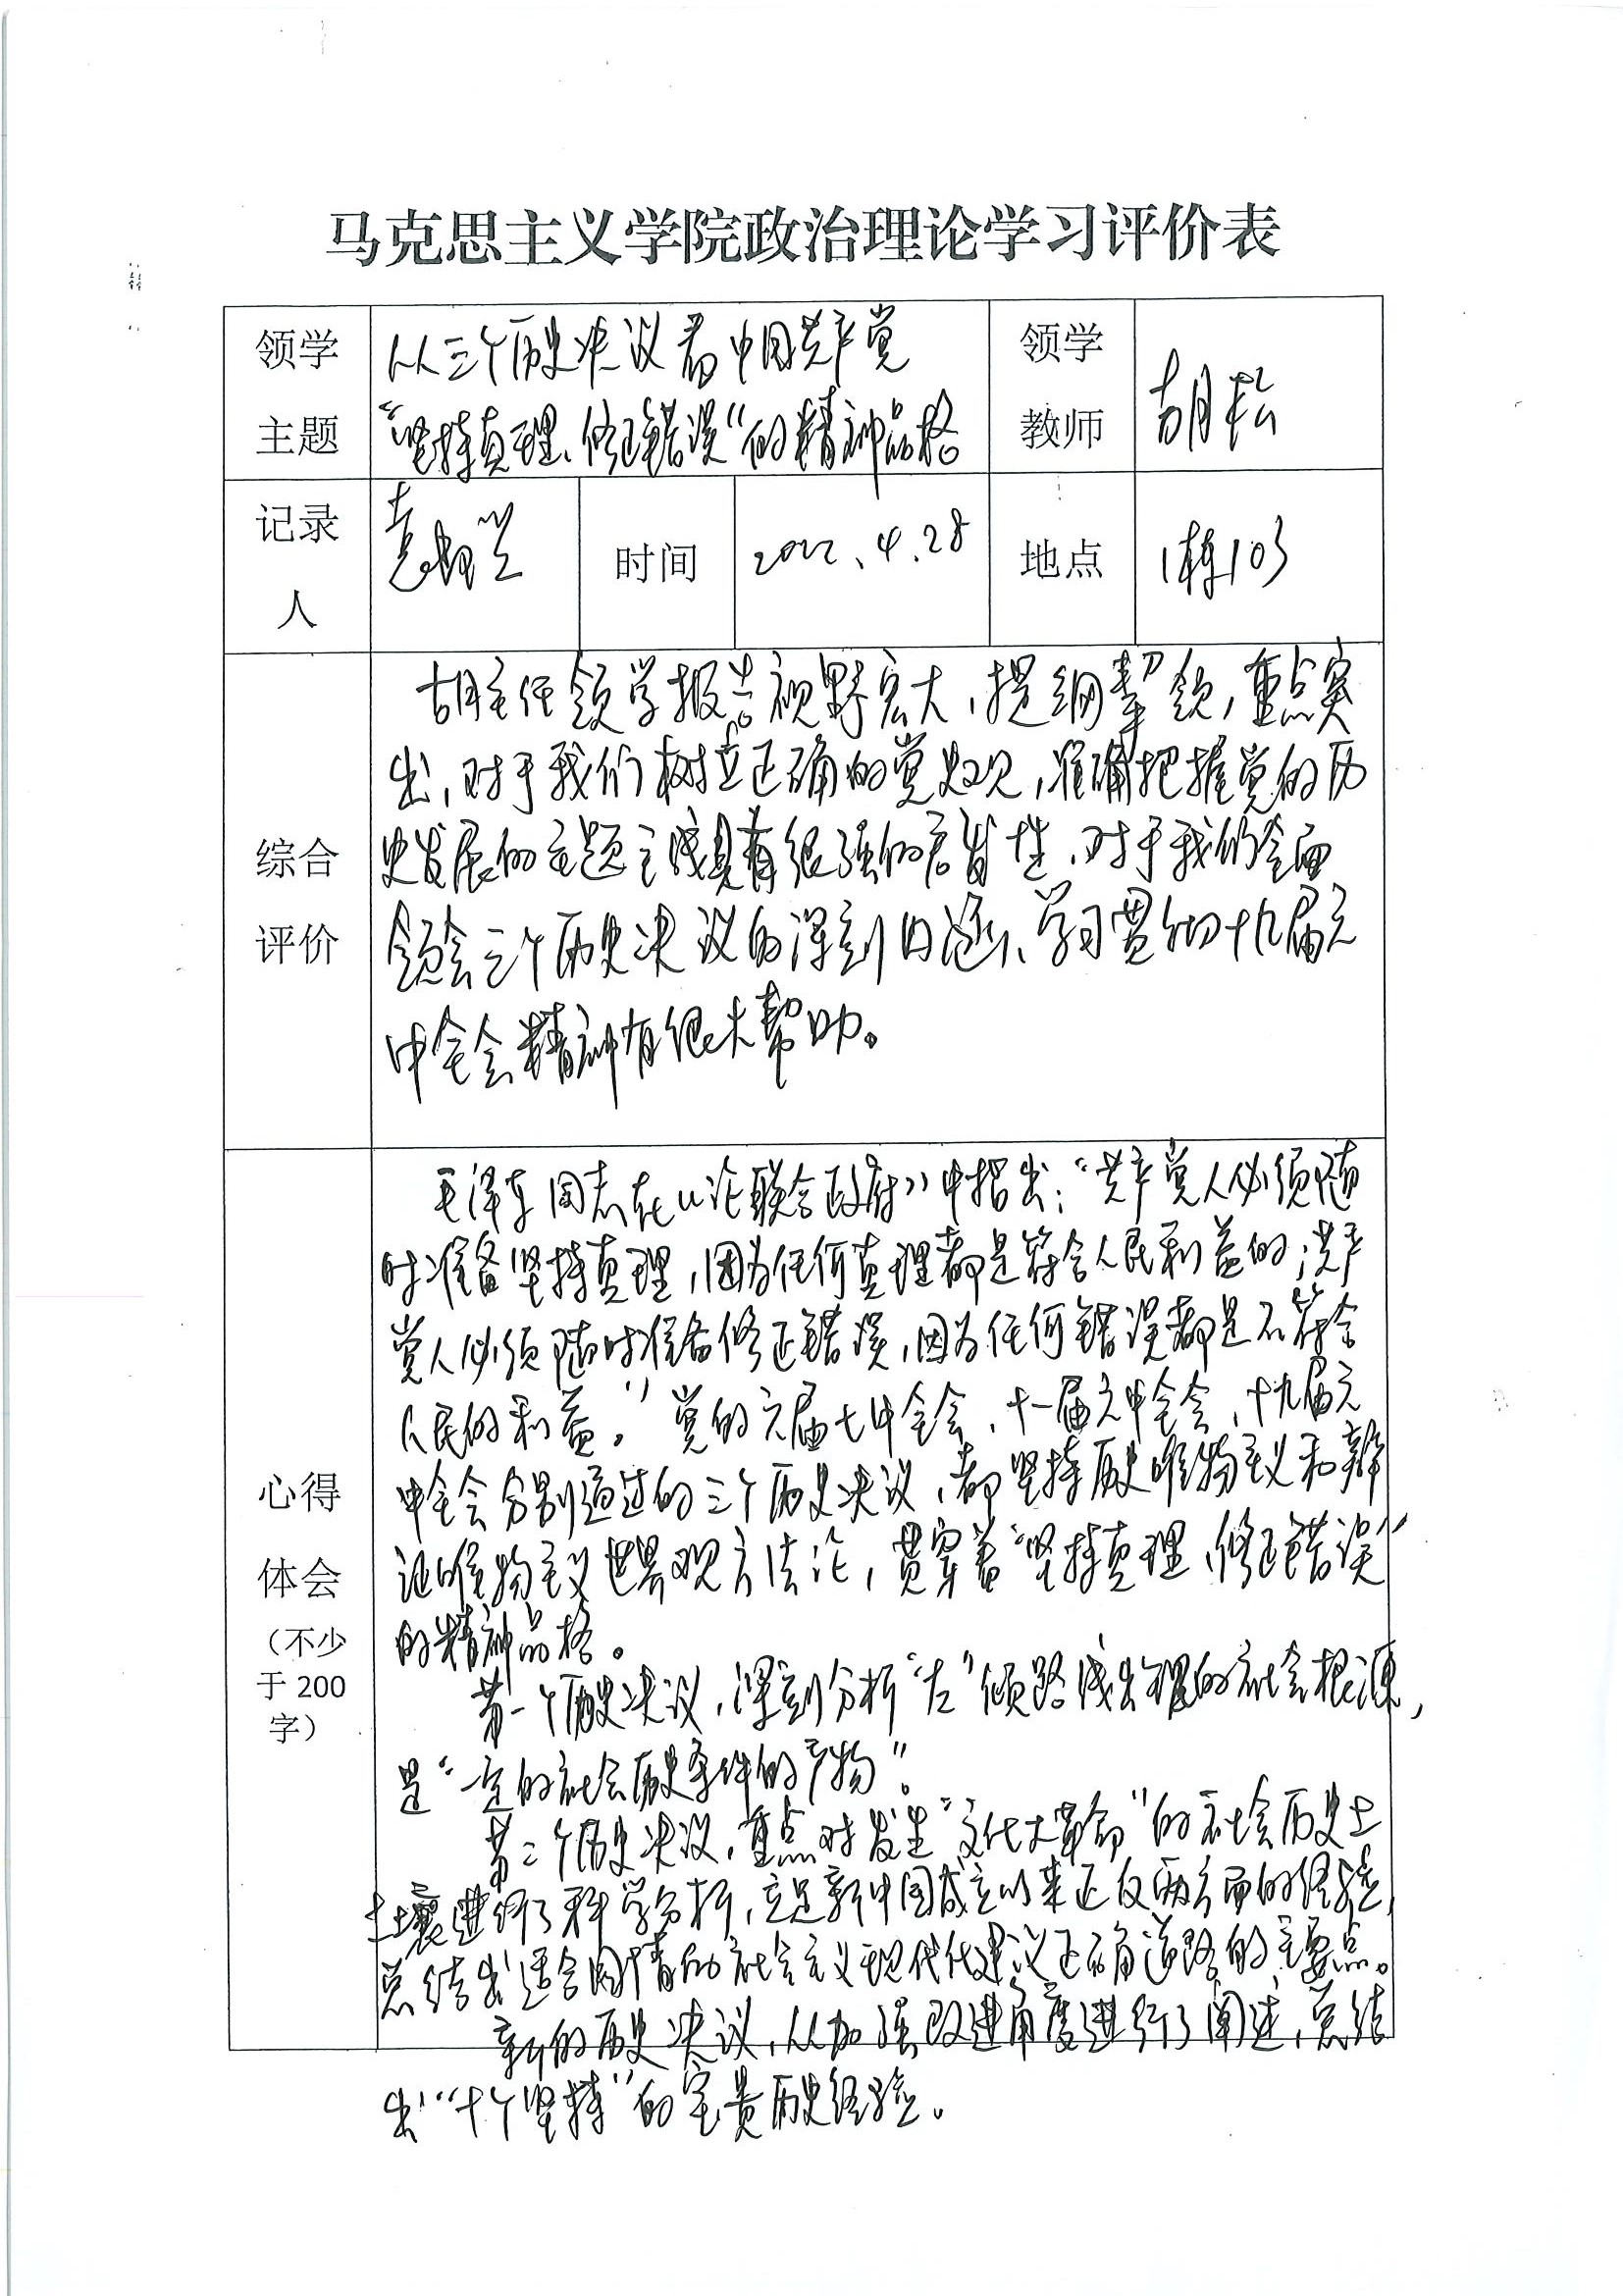 马克思主义学院政治理论学习评价表
领学
主题
从三个历史决议看中国共产党
“坚持真理、修正错误”的精神品格
领学
教师
胡松
记录
人
时间
2022.4.28
地点
1栋103
综合
评价
胡主任领学报告视野宏大，提纲挈领，重点突
出，对于我们树立正确的党史观，准确把握党的历
史发展的主题主线具有很强的启发性，对于我们全面
领会三个历史决议的深刻内涵、学习贯彻十九届六
中全会精神有很大帮助。
心得
体会
（不少
于 200
字）
毛泽东同志在《论联合政府》中指出：“共产党人必须随
时准备坚持真理，因为任何真理都是符合人民利益的；共产
党人必须随时准备修正错误，因为任何错误都是不符合
人民的利益。”党的六届七中全会、十一届六中全会、十九届六
中全会分别通过的三个历史决议，都坚持历史唯物主义和辩
证唯物主义世界观方法论，贯穿着“坚持真理、修正错误”
的精神品格。
第一个历史决议，深刻分析“左”倾路线出现的社会根源，
是“一定的社会历史条件的产物”。
第二个历史决议，重点对发生“文化大革命”的社会历史土
土壤进行了科学分析，立足新中国成立以来正反两方面的经验，
总结出适合国情的社会主义现代化建设正确道路的主要点。
新的历史决议，从加强改进角度进行了阐述，总结
出“十个坚持”的宝贵历史经验。